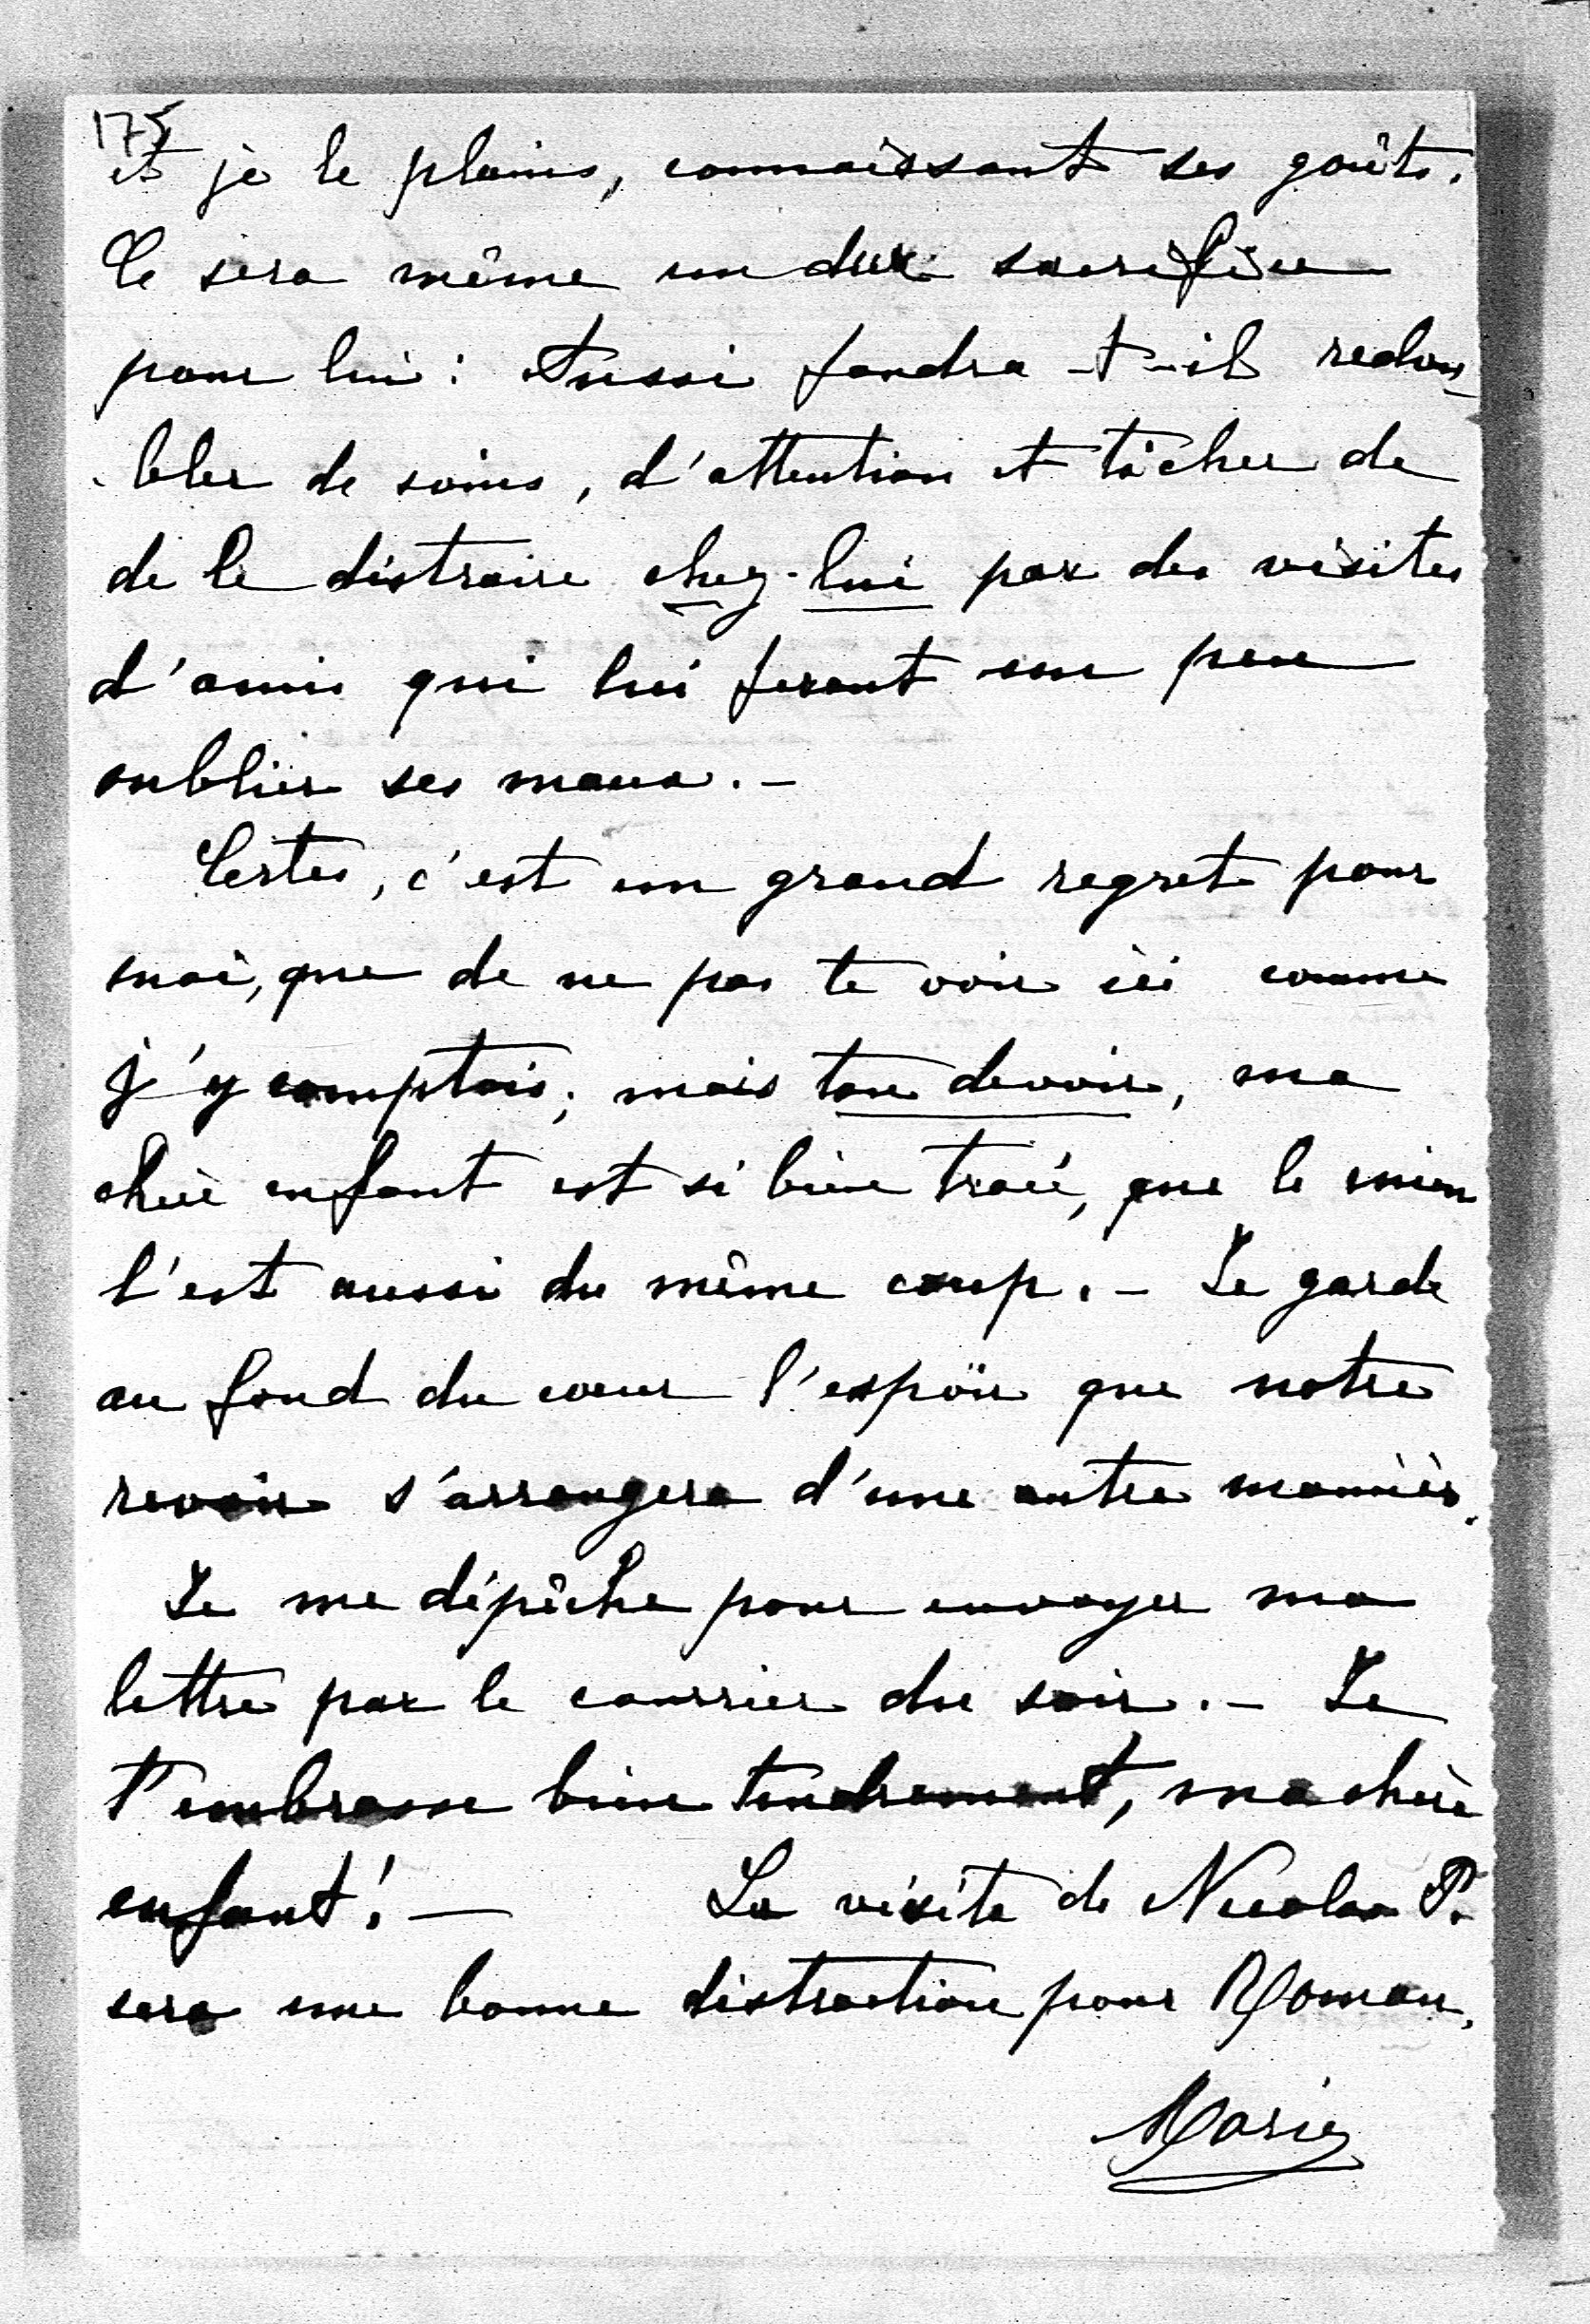 175
et je le plains, connaissant ses goûts.
Ce sera même un dur sacrifice
pour lui : Aussi faudra-t-il redou-
bler de soins, d'attention et tâcher de
de le distraire chez-lui par des visites
d'amis qui lui feront un peu
oublier ses maux. -
Certes, c'est un grand regret pour
moi, que de ne pas te voir ici comme
j'y comptais; mais ton devoir, ma
chère enfant est si bien tracé, que le mien
l'est aussi du même coup. - Je garde
au fond du cœur l'espoir que notre
revoir s'arrangera d'une autre manière.
Je me dépêche pour envoyer ma
lettre par le courrier du soir. - Je
t'embrasse bien tendrement, ma chère
enfant! - La visite de Nicolas P.
sera une bonne distraction pour Roman.
Marie